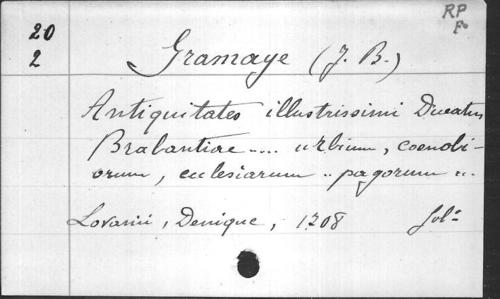 RP
F°
20
2
Gramaye (J. B.)
Antiquitates illustrissimi Ducatus
Brabantiae .... urbium, coenobi-
orum, ecclesiarum .. pagorum ...
Lovanii, Denique, 1708 fol°